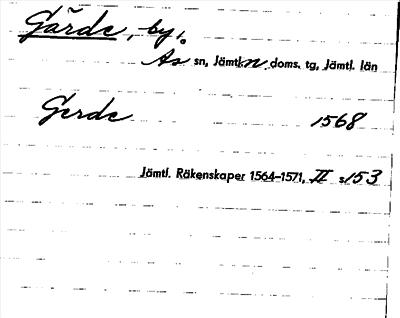 Gärde, by,
Ås sn, Jämtl. n. doms. tg, Jämtl. län
Gerde 1568
Jämtl. Räkenskaper 1564–1571, II s. 153